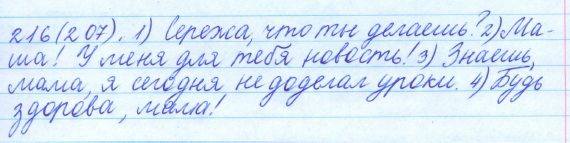 216(207). 1) Сережа, что ты делаешь? 2) Ма-
ша! У меня для тебя новость! 3) Знаешь,
мама, я сегодня, не доделал уроки. 4) Будь
здорова, мама!